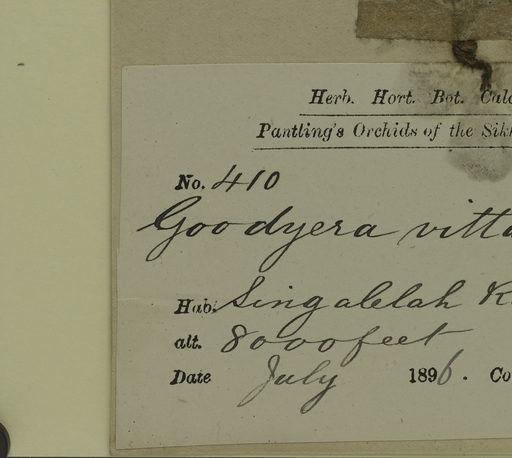 Herb. Hort. Bot. Calc
Pantling's Orchids of the Sikk
No. 410
Goodyera vitta
Hab. Singalelah R
alt. 8000 feet
Date July 1896. Co